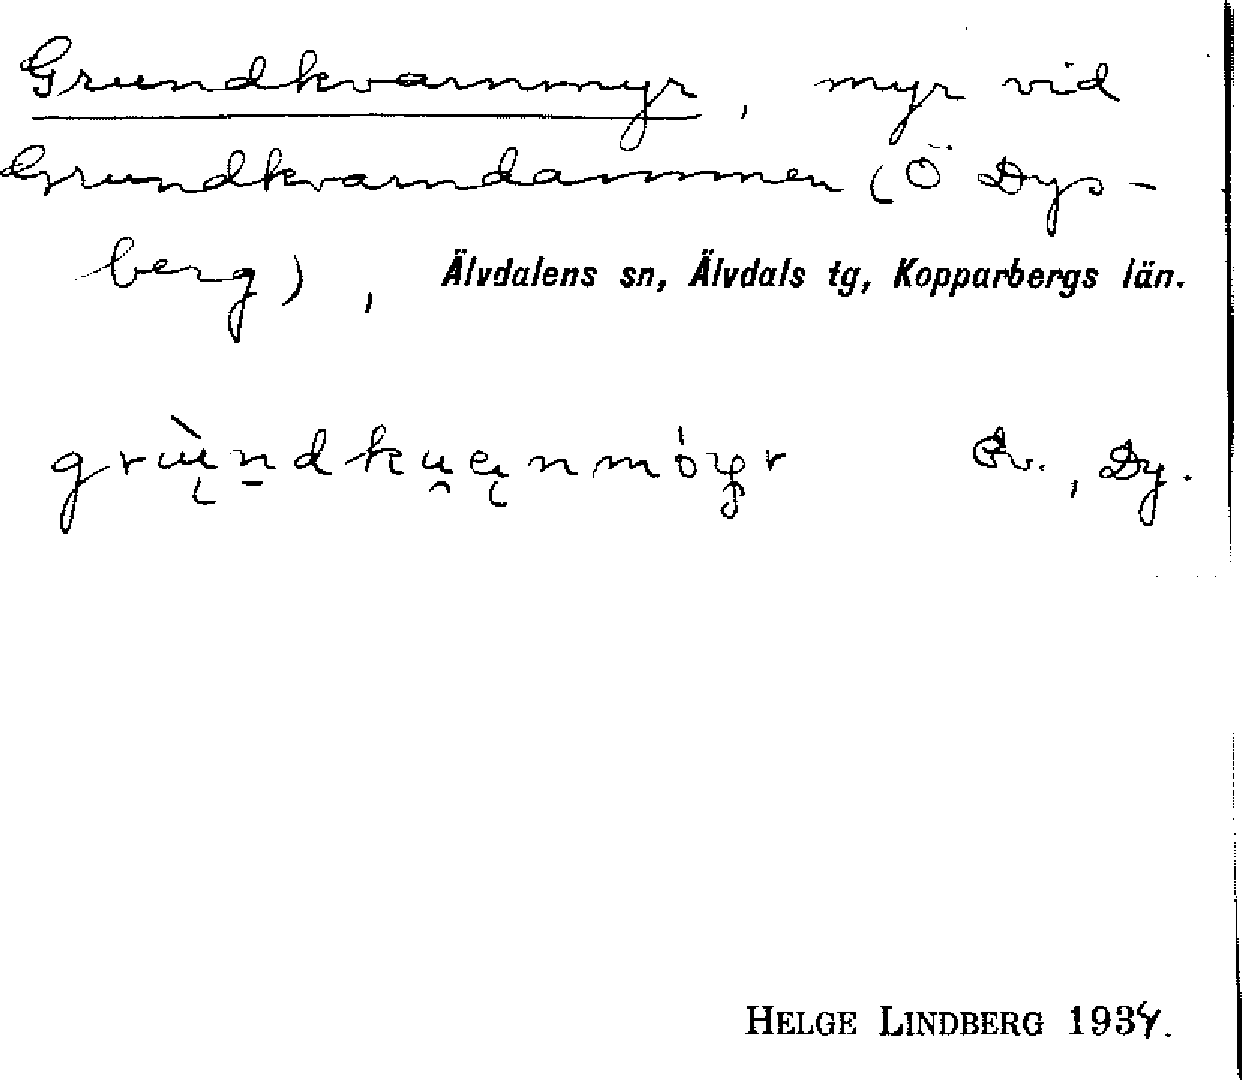 Grundkvarnmyr, myr vid
Grundkvarndammen (Ö Dys-
berg), Älvdalens sn, Älvdals tg, Kopparbergs län.
Dy.
HELGE LINDBERG 1934.